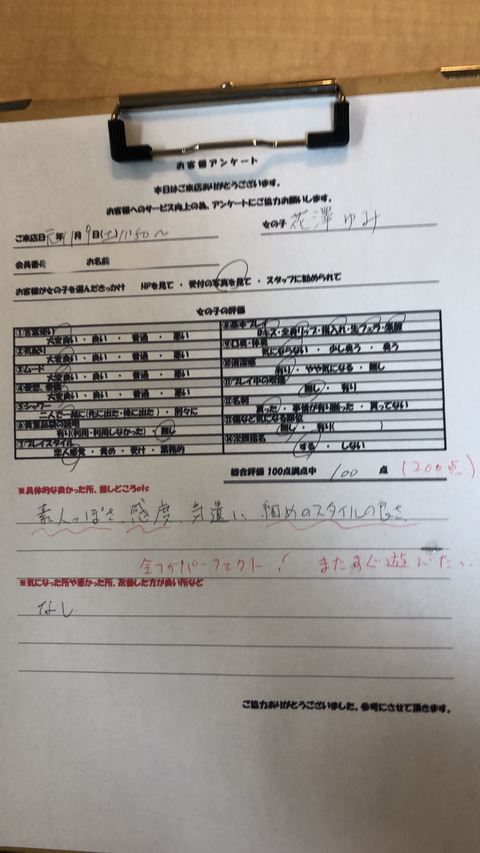 お客様アンケート
本日はご来店ありがとうございます。
お客様へのサービス向上の為、アンケートにご協力お願いします。
ご来店日 元年11月9日(土) 11:50〜 女の子 花澤ゆみ
会員番号 お名前
お客様が女の子を選んだきっかけ HPを見て ・ 受付の写真を見て ・ スタッフに勧められて
女の子の評価
①言葉使い
大変良い ・ 良い ・ 普通 ・ 悪い
②気配り
大変良い ・ 良い ・ 普通 ・ 悪い
③ムード
大変良い ・ 良い ・ 普通 ・ 悪い
大変良い ・ 良い ・ 普通 ・ 悪い
⑤シャワー
二人で一緒に(先に出た・後に出た) ・ 別々に
⑥貴重品袋の説明
有り(利用・利用しなかった) ・ 無し
⑦プレイスタイル
恋人感覚 ・ 責め ・ 受け ・ 業務的
⑧基本プレイ
Dキス・全身リップ・指入れ・生フェラ・素股
⑨口臭・体臭
気にならない ・ 少し臭う ・ 臭う
⑩清潔感
有り ・ やや気になる ・ 無し
無し ・ 有り
⑫名刺
貰った ・ 事情が有り断った ・ 貰ってない
無し ・ 有り( )
⑭次回指名
する ・ しない
総合評価 100点満点中 100 点 (200点)
※具体的な良かった所、推しどころetc
素人っぽさ、感度、気遣い、細めのスタイルの良さ
全てがパーフェクト! またすぐ遊びたい
※気になった所や悪かった所、改善した方が良い所など
なし
ご協力ありがとうございました。参考にさせて頂きます。